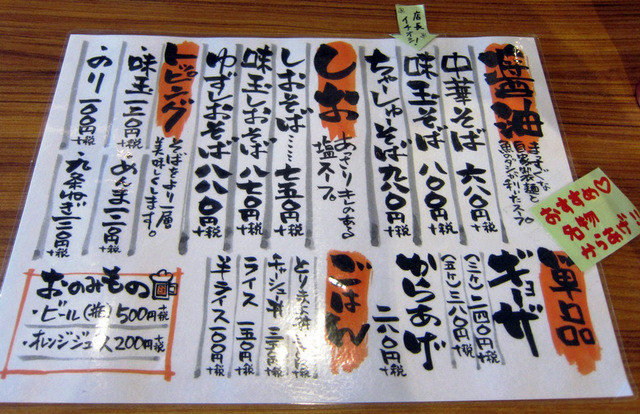 店長
イチオシ!
醤油
まっすぐな
自家製麺と
魚のダシがきいたスープ
中華そば 六八〇円+税
味玉そば 八〇〇円+税
ちゃーしゅそば 九八〇円+税
しお
あっさり、キレのある
塩スープ。
しおそば……七五〇円+税
味玉しおそば 八七〇円+税
ゆずしおそば 八八〇円+税
トッピング
そばをより一層
美味しくします。
味玉 一二〇円+税
のり 一〇〇円+税
めんま 一二〇円+税
九条ねぎ 一五〇円+税
おすすめ♡
名物
からあげ
単品
ギョーザ
(三ケ) 二四〇円+税
(五ケ) 三八〇円+税
からあげ
二八〇円+税
ごはん
とり
チャシュー丼
ライス 一五〇円+税
半ライス 一〇〇円+税
おのみもの
・ビール(瓶) 500円+税
・オレンジジュース 200円+税